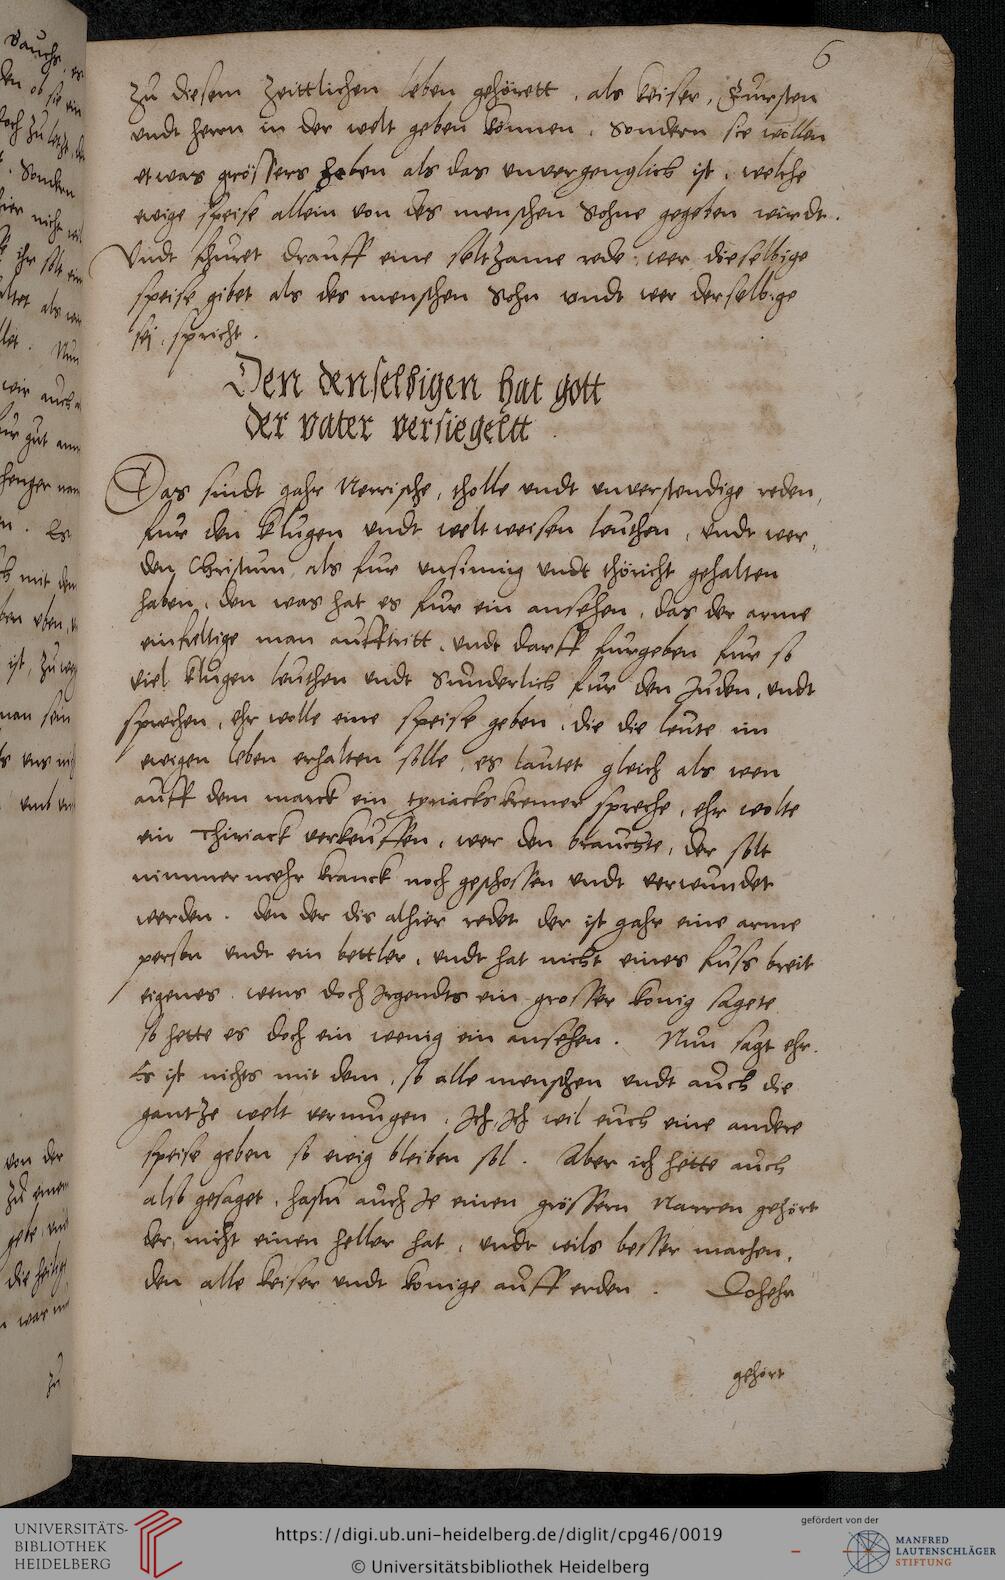 6
zu diesem Zeittlichen leben gehörett, als keiser, Fursten
undt herrn in der welt geben können, Sondern sie wollen
etwas grössers haben als das unvergenglich ist, welche
ewige speise allein von des menschen Sohne gegeben wirdt.
Undt fhuret drauff eine seltzame rede, wer dieselbige
speise gibet als des menschen Sohn undt wer derselbige
sej, spricht.
Den denselbigen hat gott
der vater versiegeltt
Das sindt gahr Nerrische, tholle undt unverstendige reden,
fur den klugen undt weltweisen leuthen, undt wer,
den Christum als fur unsinnig undt thöricht gehalten
haben, den was hat es fur ein ansehen, das der arme
einfeltige man aufftritt, undt darff furgeben fur so
viel klugen leuthen undt Sunderlich fur den Juden, undt
sprechen, ehr wolle eine speise geben, die die leute im
ewigen leben erhalten solle, es lautet gleich als wen
auff dem marck ein tyriacks kremer spreche, ehr wolte
ein Thiriack verkeuffen, wer den brauchte, der solt
nimmermehr kranck noch geschossen undt verwundet
werden. den der dis alhier redet der ist gahr eine arme
person undt ein bettler, undt hat nicht eines fuss breit
eigenes. wens doch Irgendts ein grosser könig sagete
so hette es doch ein wenig ein ansehen. Nun sagt ehr.
Es ist nichts mit dem, so alle menschen undt auch die
gantze welt vermugen, Ich, Ich wil euch eine andere
speise geben so ewig bleiben sol. Aber ich hette auch
also gesaget, hastu auch Je einen grössern Narren gehört
der nicht einen heller hat, undt wils besser machen,
den alle keiser undt konige auff erden. Doher
gehort
UNIVERSITÄTS-
BIBLIOTHEK
HEIDELBERG
https://digi.ub.uni-heidelberg.de/diglit/cpg46/0019
© Universitätsbibliothek Heidelberg
gefördert von der
MANFRED
LAUTENSCHLÄGER
STIFTUNG